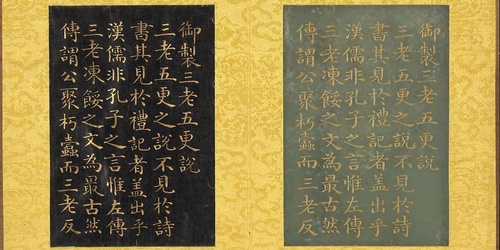 御製三老五更說
三老五更之說不見於詩
書其見於禮記者蓋出乎
漢儒非孔子之言惟左傳
三老凍餒之文為最古然
傳謂公聚朽蠹而三老反
御製三老五更說
三老五更之說不見於詩
書其見於禮記者蓋出乎
漢儒非孔子之言惟左傳
三老凍餒之文為最古然
傳謂公聚朽蠹而三老反